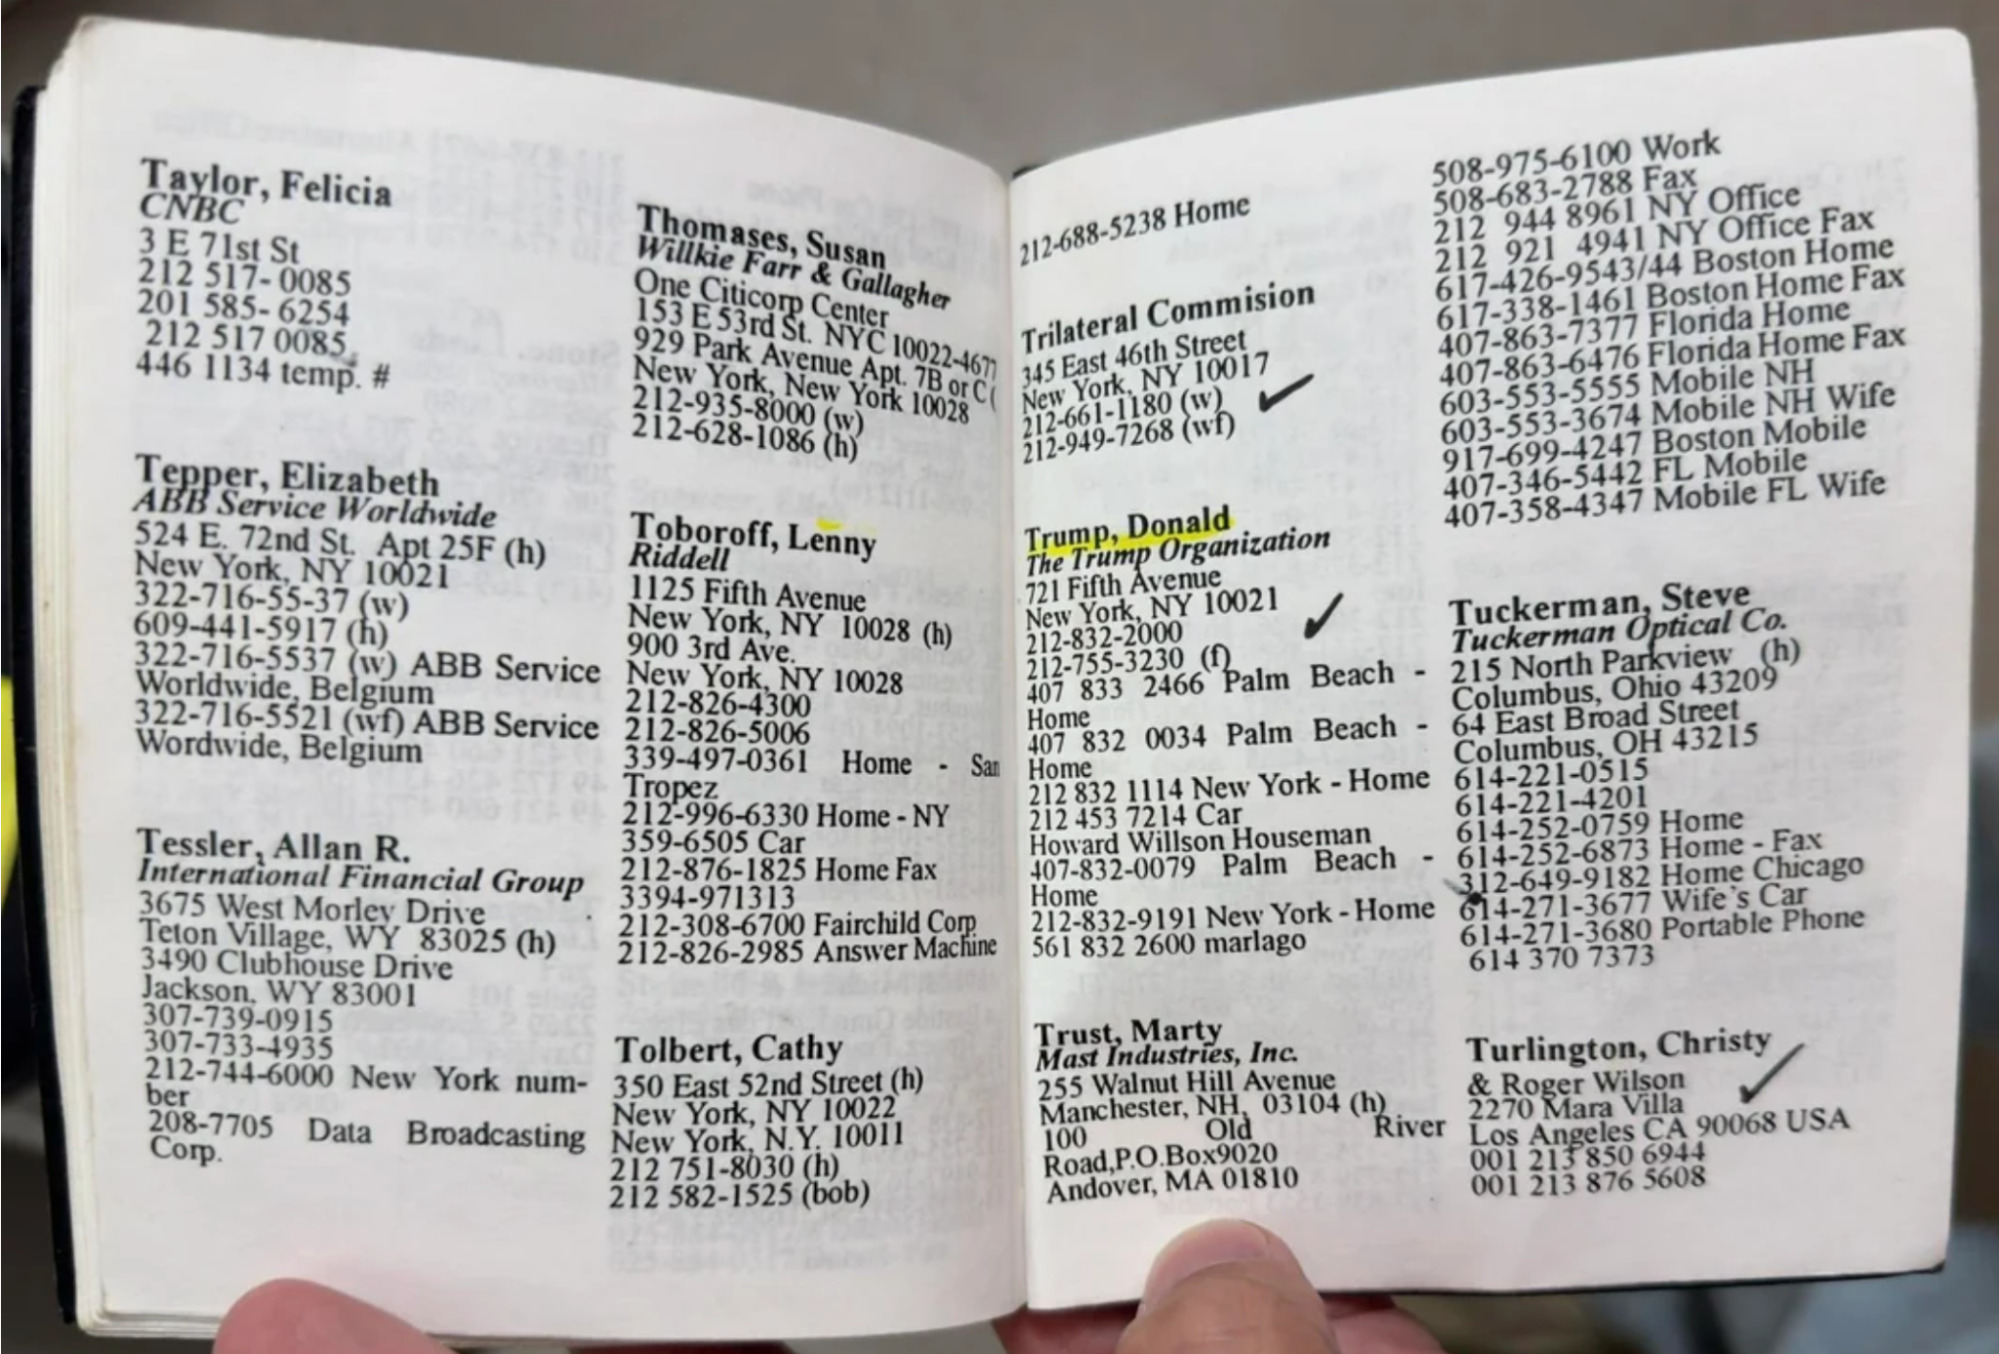 Taylor, Felicia
CNBC
3 E 71st St
212 517- 0085
201 585- 6254
212 517 0085,
446 1134 temp. #
Tepper, Elizabeth
ABB Service Worldwide
524 E. 72nd St. Apt 25F (h)
New York, NY 10021
322-716-55-37 (w)
609-441-5917 (h)
322-716-5537 (w) ABB Service
Worldwide, Belgium
322-716-5521 (wf) ABB Service
Wordwide, Belgium
Tessler, Allan R.
International Financial Group
3675 West Morley Drive
Teton Village, WY 83025 (h)
3490 Clubhouse Drive
Jackson, WY 83001
307-739-0915
307-733-4935
212-744-6000 New York num-
ber
208-7705 Data Broadcasting
Corp.
Thomases, Susan
Willkie Farr & Gallagher
One Citicorp Center
153 E 53rd St. NYC 10022-4677
929 Park Avenue Apt. 7B or C (
New York, New York 10028
212-935-8000 (w)
212-628-1086 (h)
Toboroff, Lenny
Riddell
1125 Fifth Avenue
New York, NY 10028 (h)
900 3rd Ave.
New York, NY 10028
212-826-4300
212-826-5006
339-497-0361 Home - San
Tropez
212-996-6330 Home - NY
359-6505 Car
212-876-1825 Home Fax
3394-971313
212-308-6700 Fairchild Corp
212-826-2985 Answer Machine
Tolbert, Cathy
350 East 52nd Street (h)
New York, NY 10022
New York, N.Y. 10011
212 751-8030 (h)
212 582-1525 (bob)
212-688-5238 Home
Trilateral Commision
345 East 46th Street
New York, NY 10017
212-661-1180 (w)
212-949-7268 (wf)
Trump, Donald
The Trump Organization
721 Fifth Avenue
New York, NY 10021
212-832-2000
212-755-3230 (f)
407 833 2466 Palm Beach -
Home
407 832 0034 Palm Beach -
Home
212 832 1114 New York - Home
212 453 7214 Car
Howard Willson Houseman
407-832-0079 Palm Beach -
Home
212-832-9191 New York - Home
561 832 2600 marlago
Trust, Marty
Mast Industries, Inc.
255 Walnut Hill Avenue
Manchester, NH, 03104 (h)
100 Old River
Road,P.O.Box9020
Andover, MA 01810
508-975-6100 Work
508-683-2788 Fax
212 944 8961 NY Office
212 921 4941 NY Office Fax
617-426-9543/44 Boston Home
617-338-1461 Boston Home Fax
407-863-7377 Florida Home
407-863-6476 Florida Home Fax
603-553-5555 Mobile NH
603-553-3674 Mobile NH Wife
917-699-4247 Boston Mobile
407-346-5442 FL Mobile
407-358-4347 Mobile FL Wife
Tuckerman, Steve
Tuckerman Optical Co.
215 North Parkview (h)
Columbus, Ohio 43209
64 East Broad Street
Columbus, OH 43215
614-221-0515
614-221-4201
614-252-0759 Home
614-252-6873 Home - Fax
312-649-9182 Home Chicago
614-271-3677 Wife's Car
614-271-3680 Portable Phone
614 370 7373
Turlington, Christy
& Roger Wilson
2270 Mara Villa
Los Angeles CA 90068 USA
001 213 850 6944
001 213 876 5608